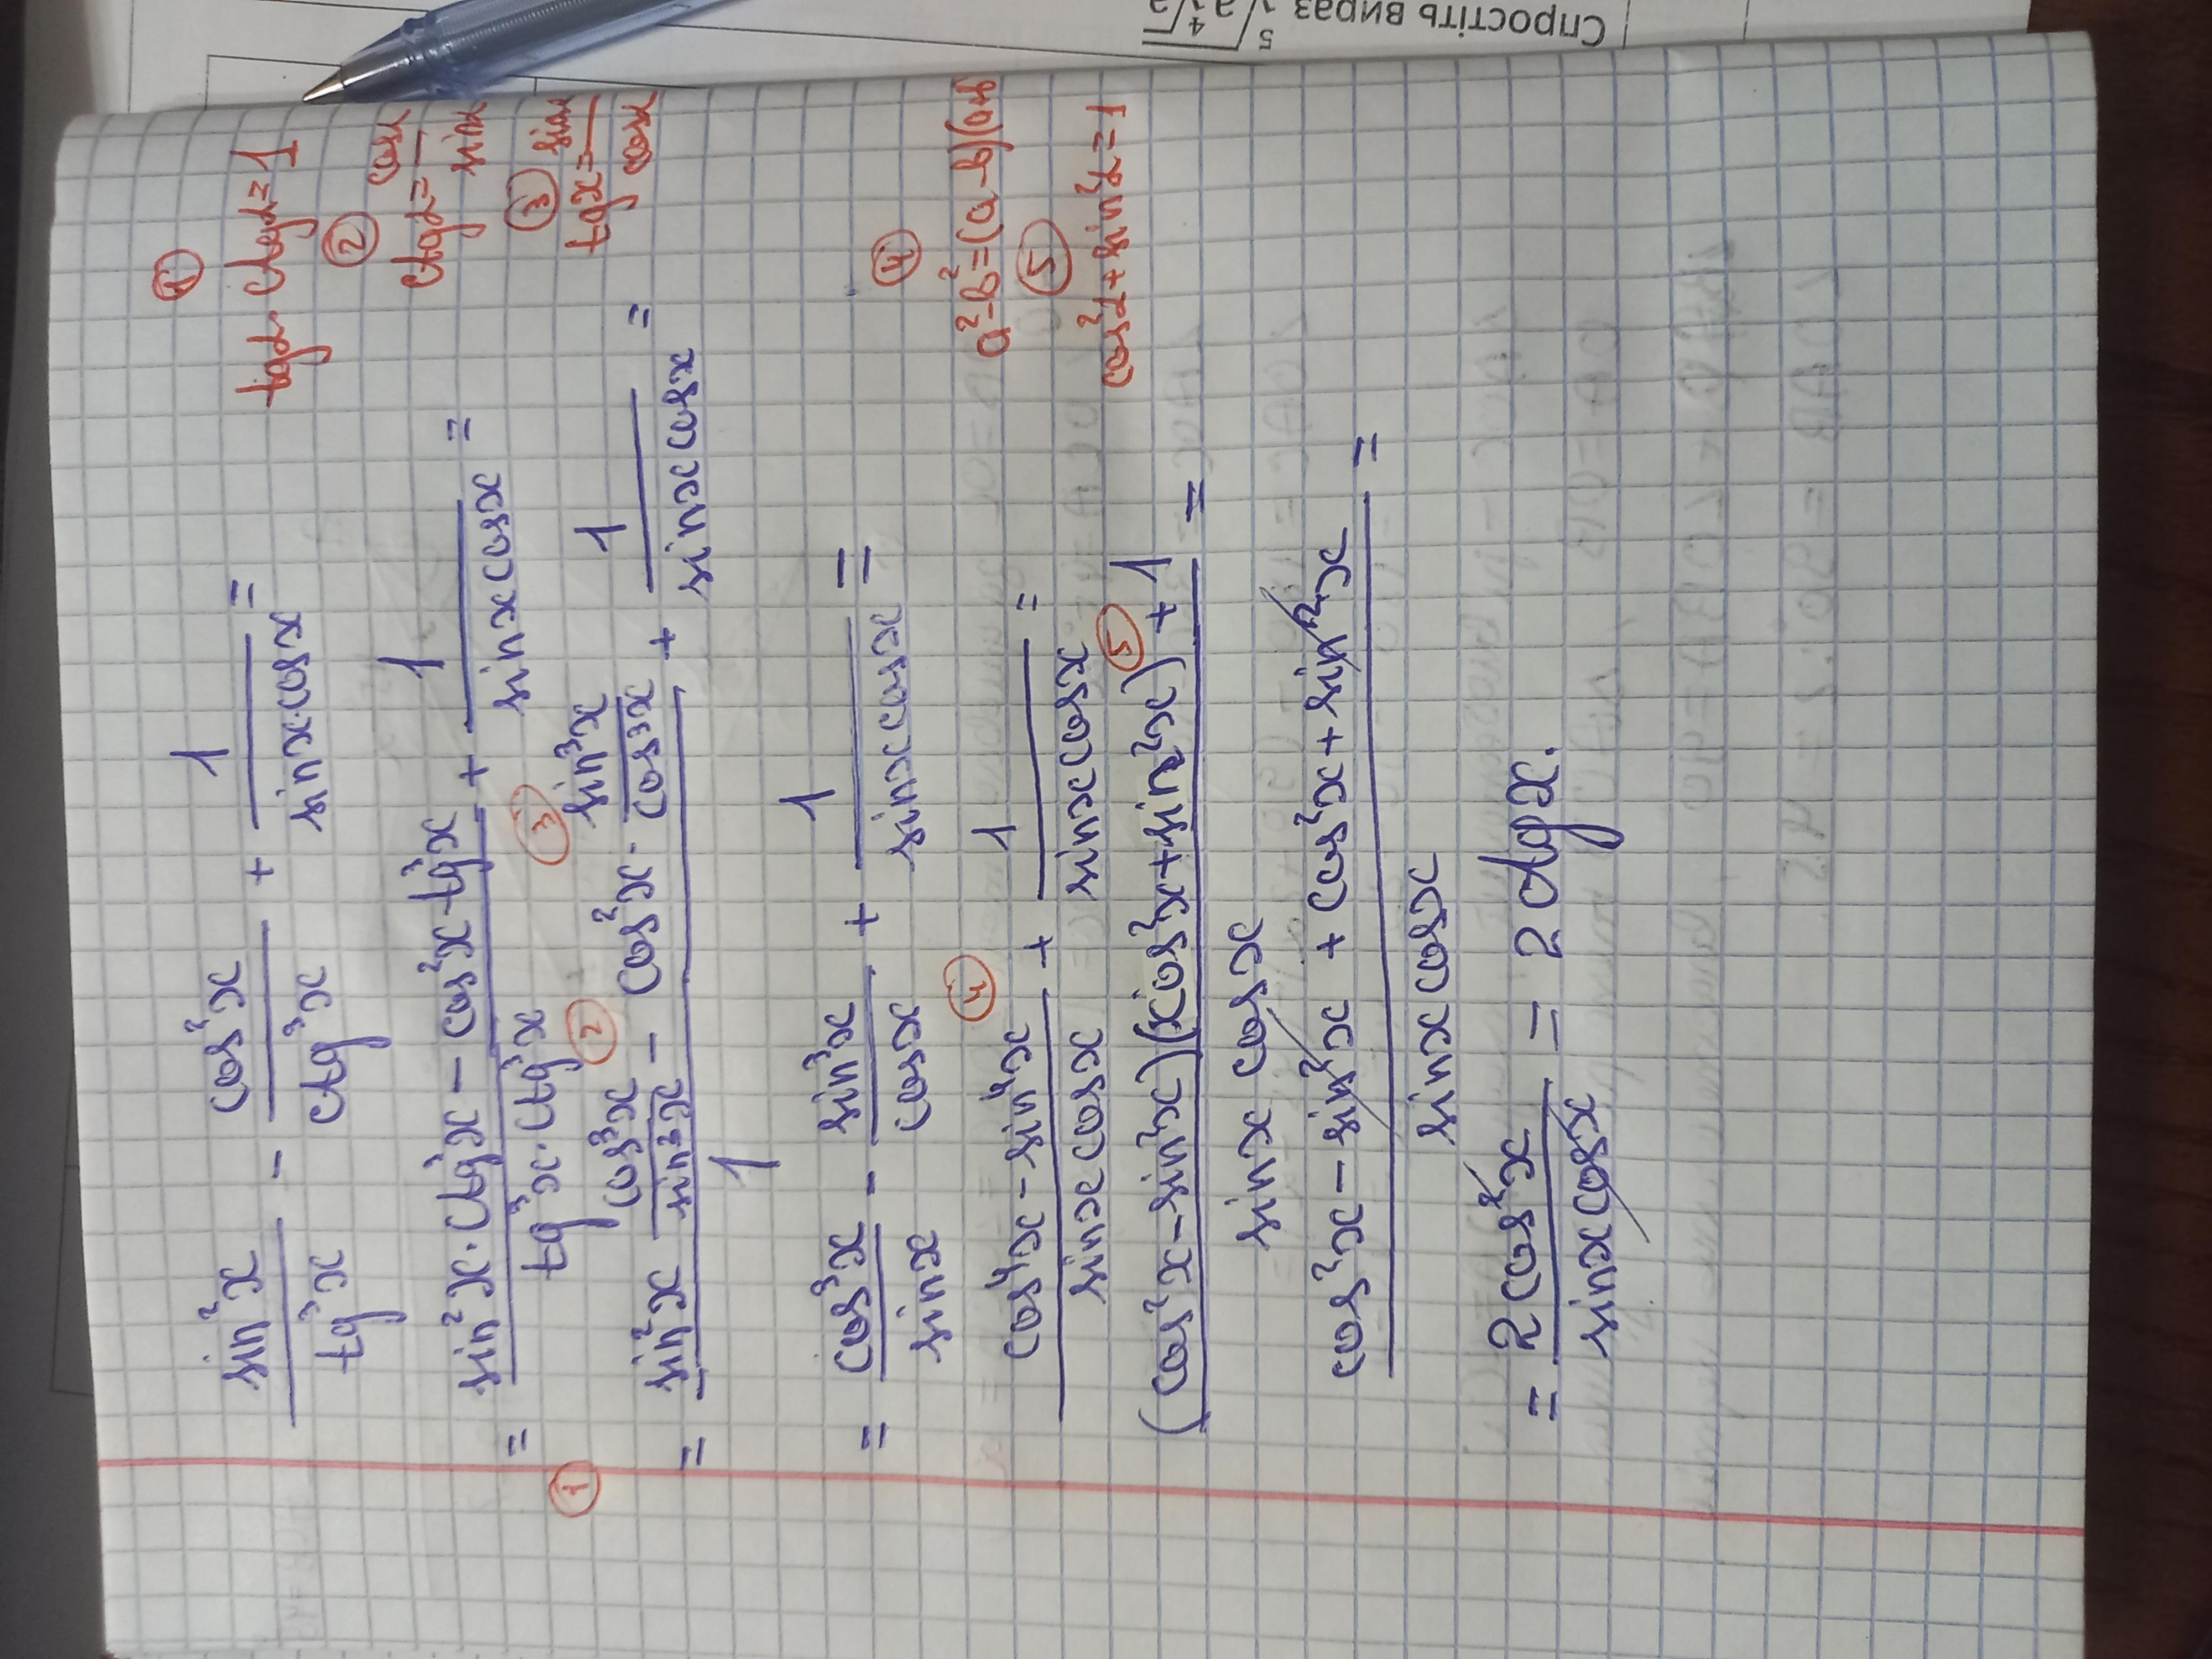 Спростіть вираз ⁵√a ⁴√a
sin²x/tg³x − cos²x/ctg³x + 1/(sinx·cosx) =
= (sin²x·ctg³x − cos²x·tg³x)/(tg³x·ctg³x) + 1/(sinx cosx) =
① ② ③
= (sin²x cos³x/sin³x − cos²x · sin³x/cos³x)/1 + 1/(sinx cosx) =
= cos³x/sinx − sin³x/cosx + 1/(sinx cosx) =
④
(cos⁴x − sin⁴x)/(sinx cosx) + 1/(sinx cosx) =
⑤
((cos²x − sin²x)(cos²x + sin²x) + 1)/(sinx cosx) =
(cos²x − sin²x + cos²x + sin²x)/(sinx cosx) =
= 2cos²x/(sinx cosx) = 2ctgx.
①
tgα·ctgα=1
②
ctgα= cosα/sinα
③
tgα= sinα/cosα
④
a²−b²=(a−b)(a+b
⑤
cos²α+sin²α=1